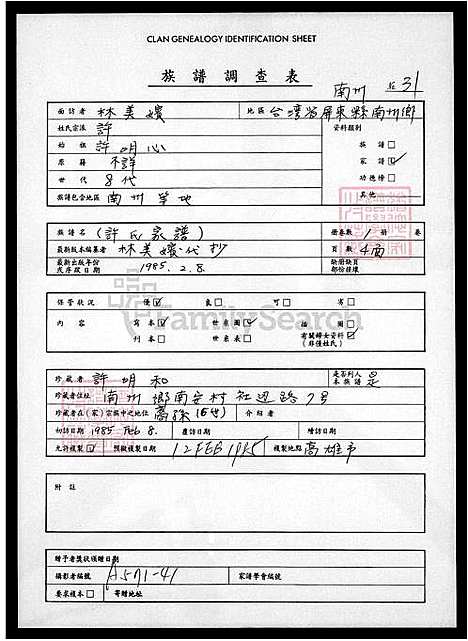 CLAN GENEALOGY IDENTIFICATION SHEET
族譜調查表
南州 31
面訪者 林美嬪 地區 台灣省屏東縣南州鄉
姓氏宗派 許 資料類別
始祖 許明心 族譜□
原籍 不詳 家譜☑
世代 8代 功德榜□
族譜包含地區 南州等地 其他
族譜名 (許氏家譜) 冊卷數 1
最新版本編纂者 林美嬪代抄 頁數 4面
最新出版年份或序政日期 1985. 2. 8. 缺冊缺頁部份接續
保管狀況 優☑ 良□ 可□ 劣□
內容 寫本☑ 世系圖☑ 插圖□
刊本□ 世系表□ 有關婦女資料☑ (非僅姓氏)
FamilySearch
珍藏者 許明和 是否列入本族譜 是
珍藏者住址 南州鄉南安村社邊路7号
珍藏者在(家)宗族中之地位 裔孫(6世) 介紹者
初訪日期 1985 Feb 8. 覆訪日期 續訪日期
允許複製☑ 預擬複製日期 12 FEB 1985 複製地點 高雄市
附註
贈予者獎狀頒贈日期
攝影者編號 A571-41 家譜學會編號
要求複本□ 寄贈地址